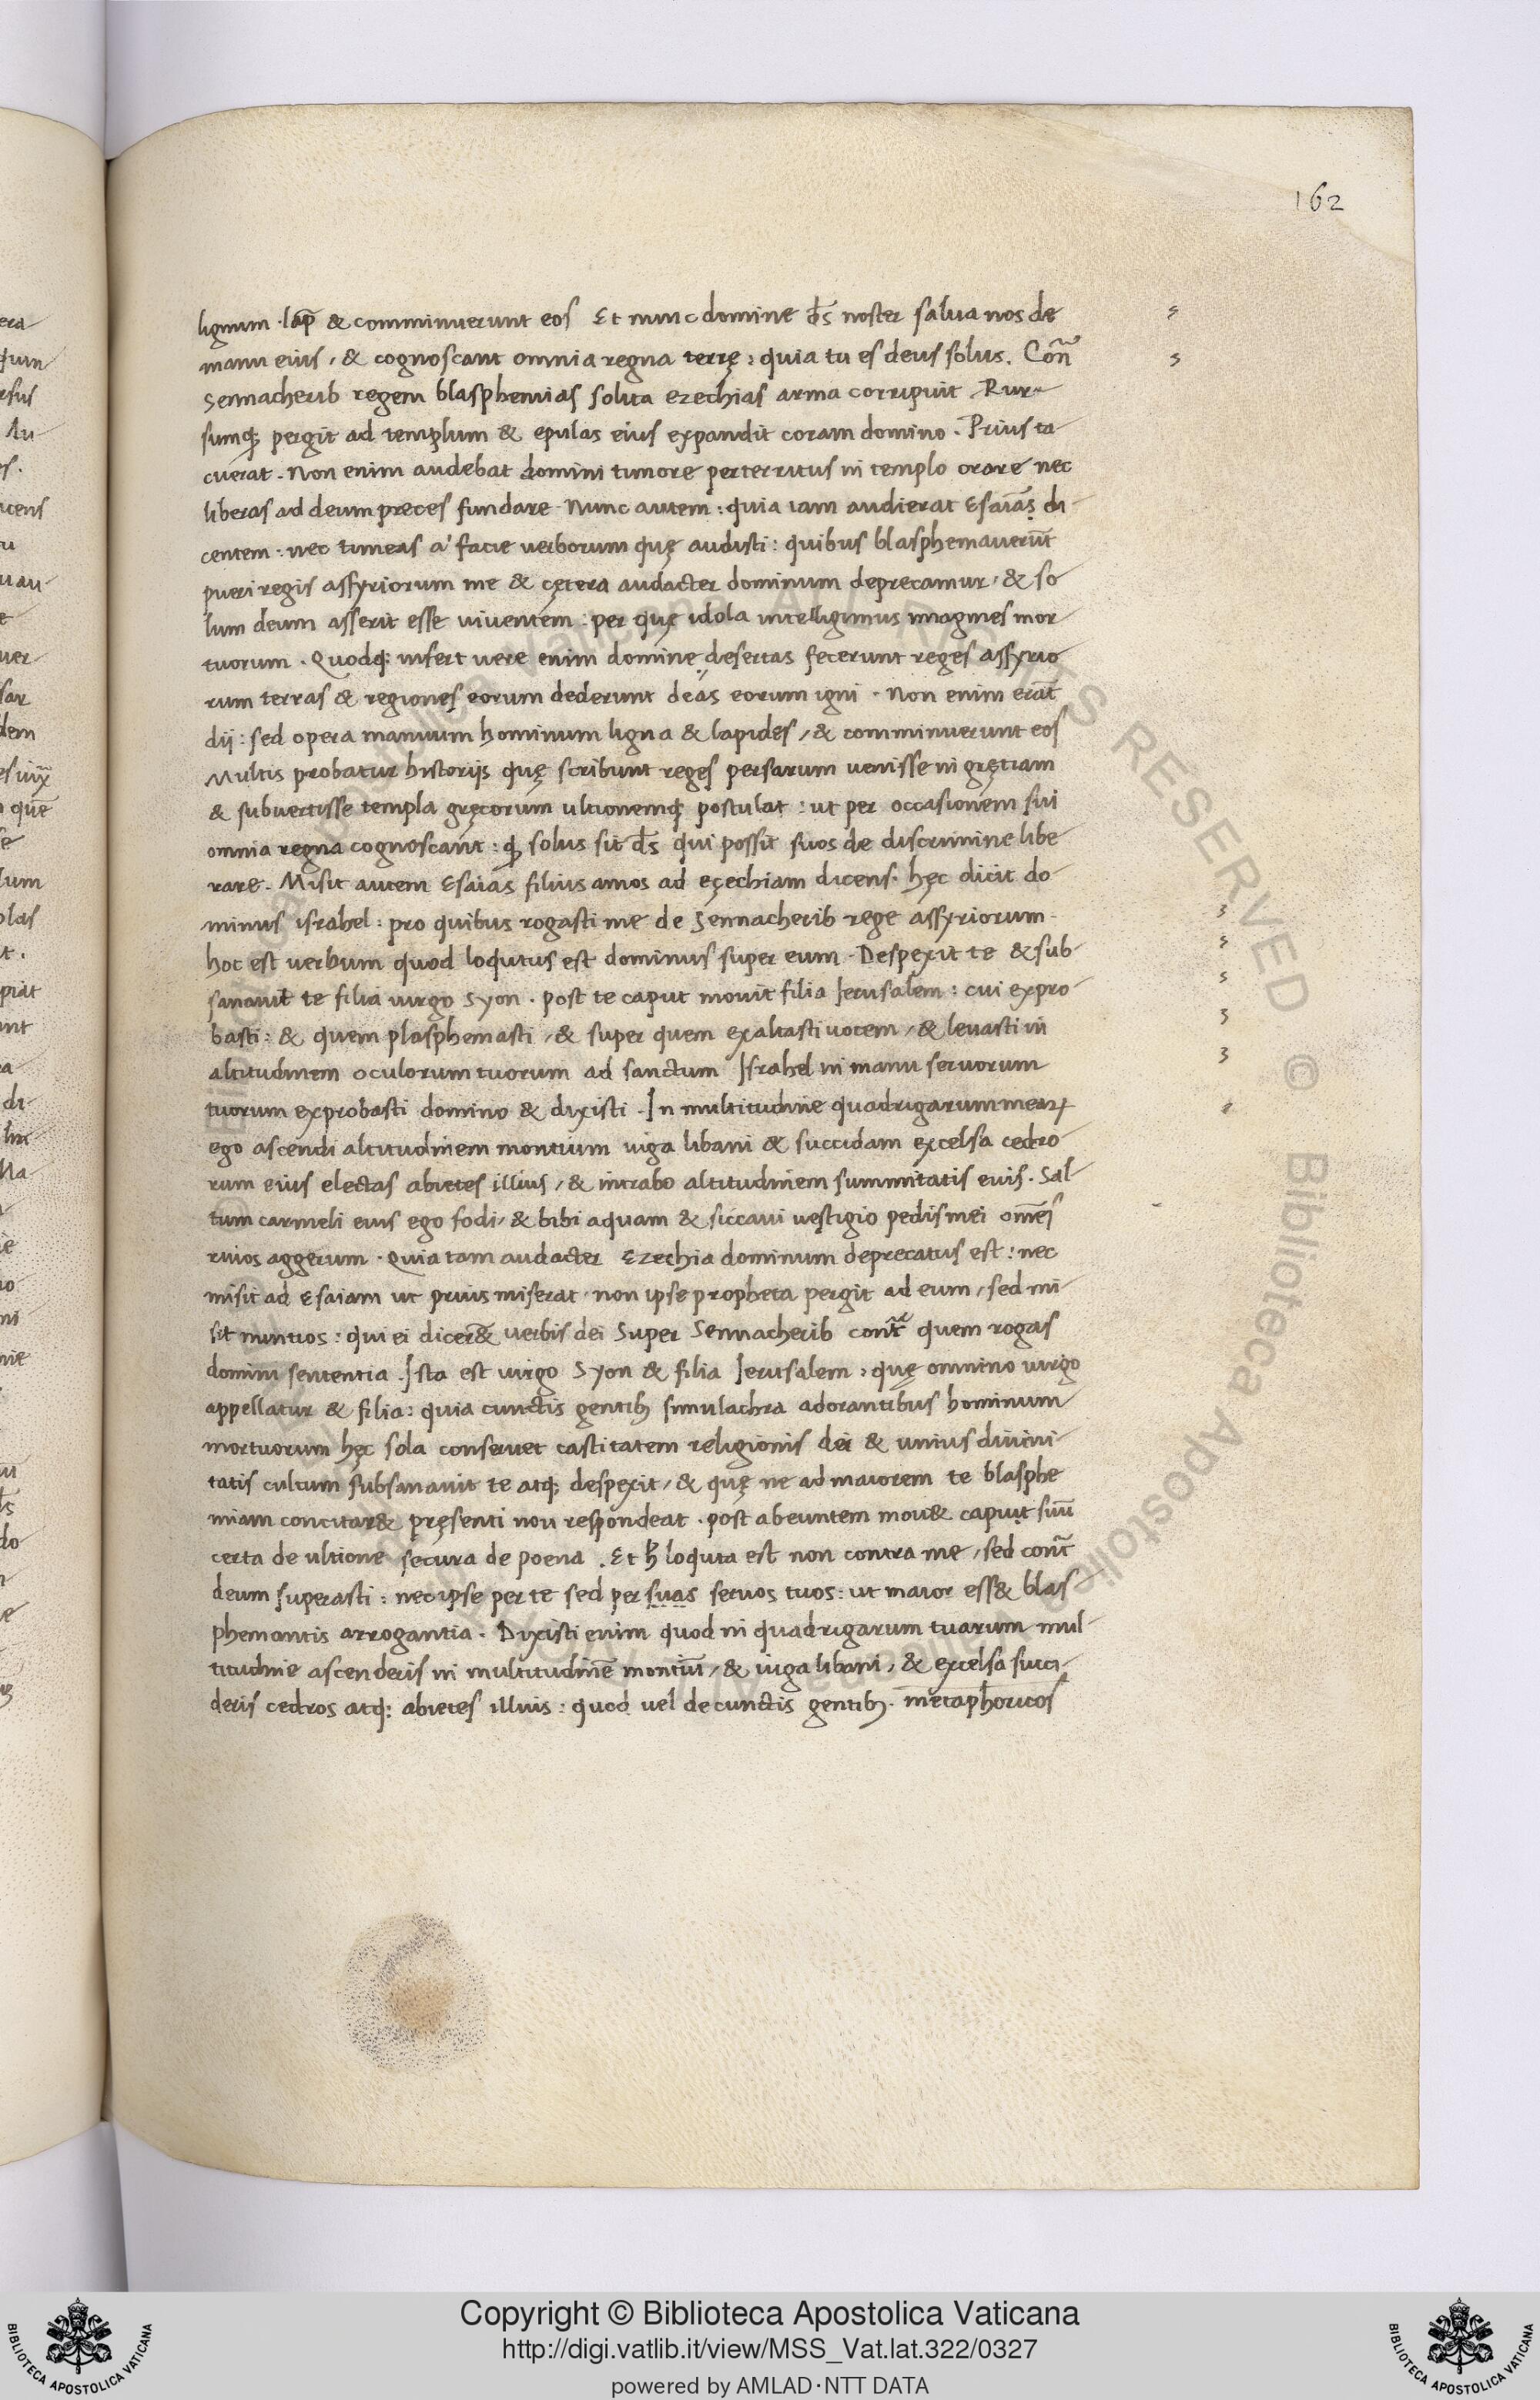 162
lignum · lap̄ & comminuerunt eos Et nunc domine d̄s noster salua nos de
manu eius, & cognoscant omnia regna terrę: quia tu es deus solus. Con̄
Sennacherib regem blasphemias solita ezechias arma corripuit Rur-
sumq; pergit ad templum & epulas eius expandit coram domino. Prius ta
cuerat. Non enim audebat domini timore perterritus in templo orare nec
liberas ad deum preces fundare. Nunc autem: quia iam audierat Esaias di-
centem: nec timeas a' facie uerborum quę audisti: quibus blasphemauerūt
pueri regis assyriorum me & cętera audacter dominum deprecamur, & so
lum deum asserit esse viventem: per quę idola intelligimus imagines mor
tuorum. Quodq; infert uere enim domine desertas fecerunt reges assyrio
rum terras & regiones eorum dederunt deas eorum igni. Non enim erāt
dij: sed opera manuum hominum ligna & lapides, & comminuerunt eos
Multis probatur historijs quę scribunt reges persarum uenisse in gręciam
& subuertisse templa gręcorum ultionemq; postulat: ut per occasionem sui
omnia regna cognoscant: ꝙ solus sit d̄s qui possit suos de discrimine libe
rare. Misit autem Esaias filius amos ad ezechiam dicens. hęc dicit do
minus israhel: pro quibus rogasti me de Sennacherib rege assyriorum.
hoc est uerbum quod loqutus est dominus super eum. Despexit te & sub
sanauit te filia uirgo Syon. post te caput mouit filia Ierusalem: cui expro
basti: & quem plasphemasti, & super quem exaltasti uocem, & leuasti in
altitudinem oculorum tuorum ad sanctum Israhel in manu seruorum
tuorum exprobasti domino & dixisti. In multitudine quadrigarum mearꝝ
ego ascendi altitudinem montium iuga libani & succidam excelsa cedro
rum eius electas abietes illius, & intrabo altitudinem summitatis euis. Sal-
tum carmeli eius ego fodi, & bibi aquam & siccaui uestigio pedis mei om̄es
riuos aggerum. Quia tam audacter Ezechia dominum deprecatus est: nec
misit ad Esaiam ut prius miserat, non ipse propheta pergit ad eum, sed mi
sit nuntios: qui ei dicer& uerbis dei Super Sennacherib contr̄a quem rogas
domini sententia. Ista est uirgo Syon & filia Ierusalem: quę omnino uirgo
appellatur & filia: quia cunctis gentibꝫ simulachra adorantibus hominum
mortuorum hęc sola conseruet castitatem religionis dei & unius diuini-
tatis cultum subsanauit te atq; despexit, & quę ne ad maiorem te blasphe
miam concitar& pręsenti non respondeat. post abeuntem mou& caput suū
certa de ultione secura de poena. Et h̄ loquta est non contra me, sed contr̄
deum superasti: nec ipse per te sed per suas seruos tuos: ut maior ess& blas-
phemantis arrogantia. Dixisti enim quod in quadrigarum tuarum mul-
titudine ascenderis in multitudinē montiū, & iuga libani, & excelsa succi-
deris cedros atq; abietes illius: quod uel de cunctis gentibꝫ. metaphoricos
Copyright © Biblioteca Apostolica Vaticana
http://digi.vatlib.it/view/MSS_Vat.lat.322/0327
powered by AMLAD·NTT DATA